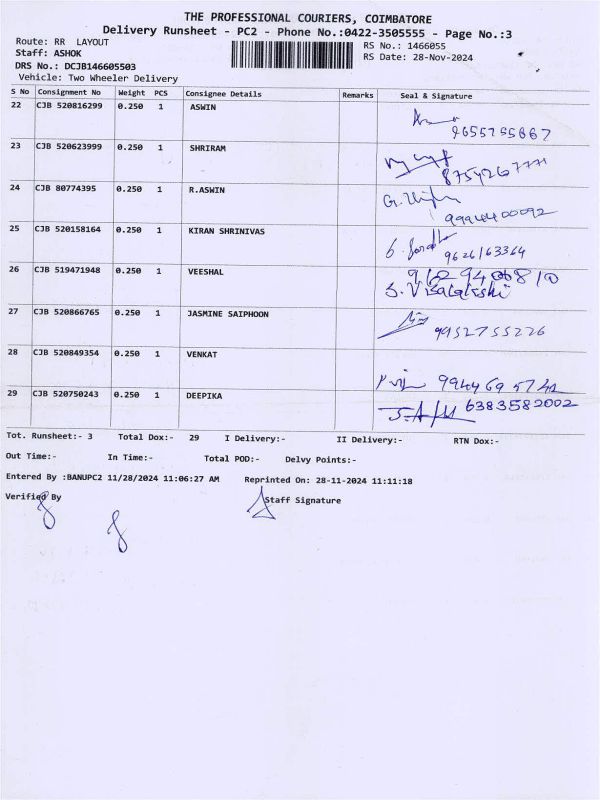 THE PROFESSIONAL COURIERS, COIMBATORE
Delivery Runsheet - PC2 - Phone No.:0422-3505555 - Page No.:3
Route: RR LAYOUT
RS No.: 1466055
Staff: ASHOK
RS Date: 28-Nov-2024
DRS No.: DCJB146605503
Vehicle: Two Wheeler Delivery
S No Consignment No Weight PCS Consignee Details Remarks Seal & Signature
22 CJB 520816299 0.250 1 ASWIN
9655755867
23 CJB 520623999 0.250 1 SHRIRAM
24 CJB 80774395 0.250 1 R.ASWIN
9994400092
25 CJB 520158164 0.250 1 KIRAN SHRINIVAS
9626163364
26 CJB 519471948 0.250 1 VEESHAL
S. Visalakshi
27 CJB 520866765 0.250 1 JASMINE SAIPHOON
9952755226
28 CJB 520849354 0.250 1 VENKAT
29 CJB 520750243 0.250 1 DEEPIKA
6383582002
Tot. Runsheet:- 3 Total Dox:- 29 I Delivery:- II Delivery:- RTN Dox:-
Out Time:- In Time:- Total POD:- Delvy Points:-
Entered By :BANUPC2 11/28/2024 11:06:27 AM Reprinted On: 28-11-2024 11:11:18
Verified By Staff Signature